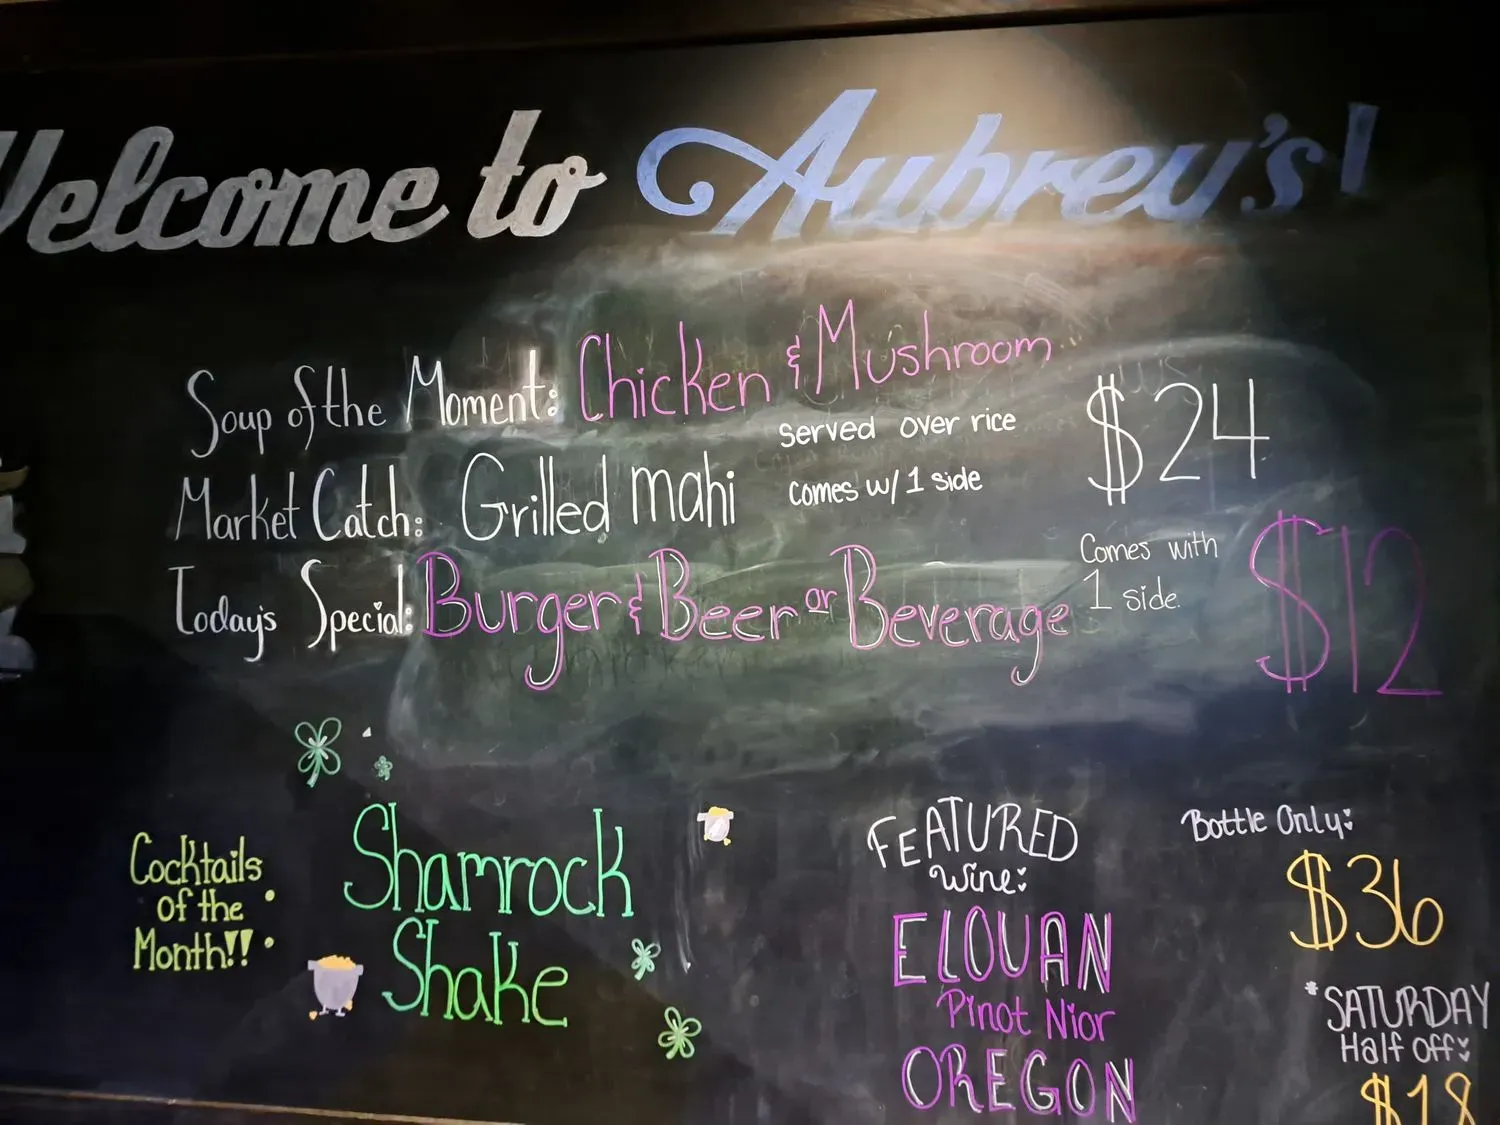 Welcome to Aubrey's!
Soup of the Moment: Chicken & Mushroom
served over rice
Market Catch: Grilled mahi comes w/ 1 side $24
Today's Special: Burger & Beer or Beverage
Comes with
1 side.
$12
Cocktails
of the
Month!!
Shamrock
Shake
FEATURED
Wine:
ELOUAN
Pinot Nior
OREGON
Bottle Only:
$36
*SATURDAY
Half off:
$18